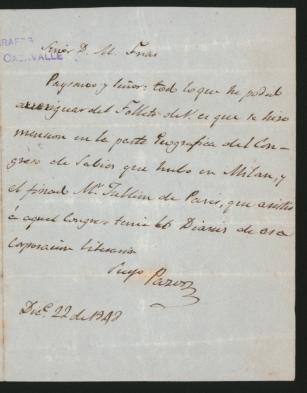 GRAFOS
CASAVALLE
Señor D. M. Frias
Paysano y Señor: tod lo que he podid
averiguar del Folleto de V. es que se hizo
mencion en la parte Geografica del Con-
greso de Sabios que hubo en Milan, y
el finad Mr. de Paris, que asistio
a aquel Congreso tenia los Diarios de esa
corporacion literaria
Suyo Pazos
Dic.e 22 de 1848